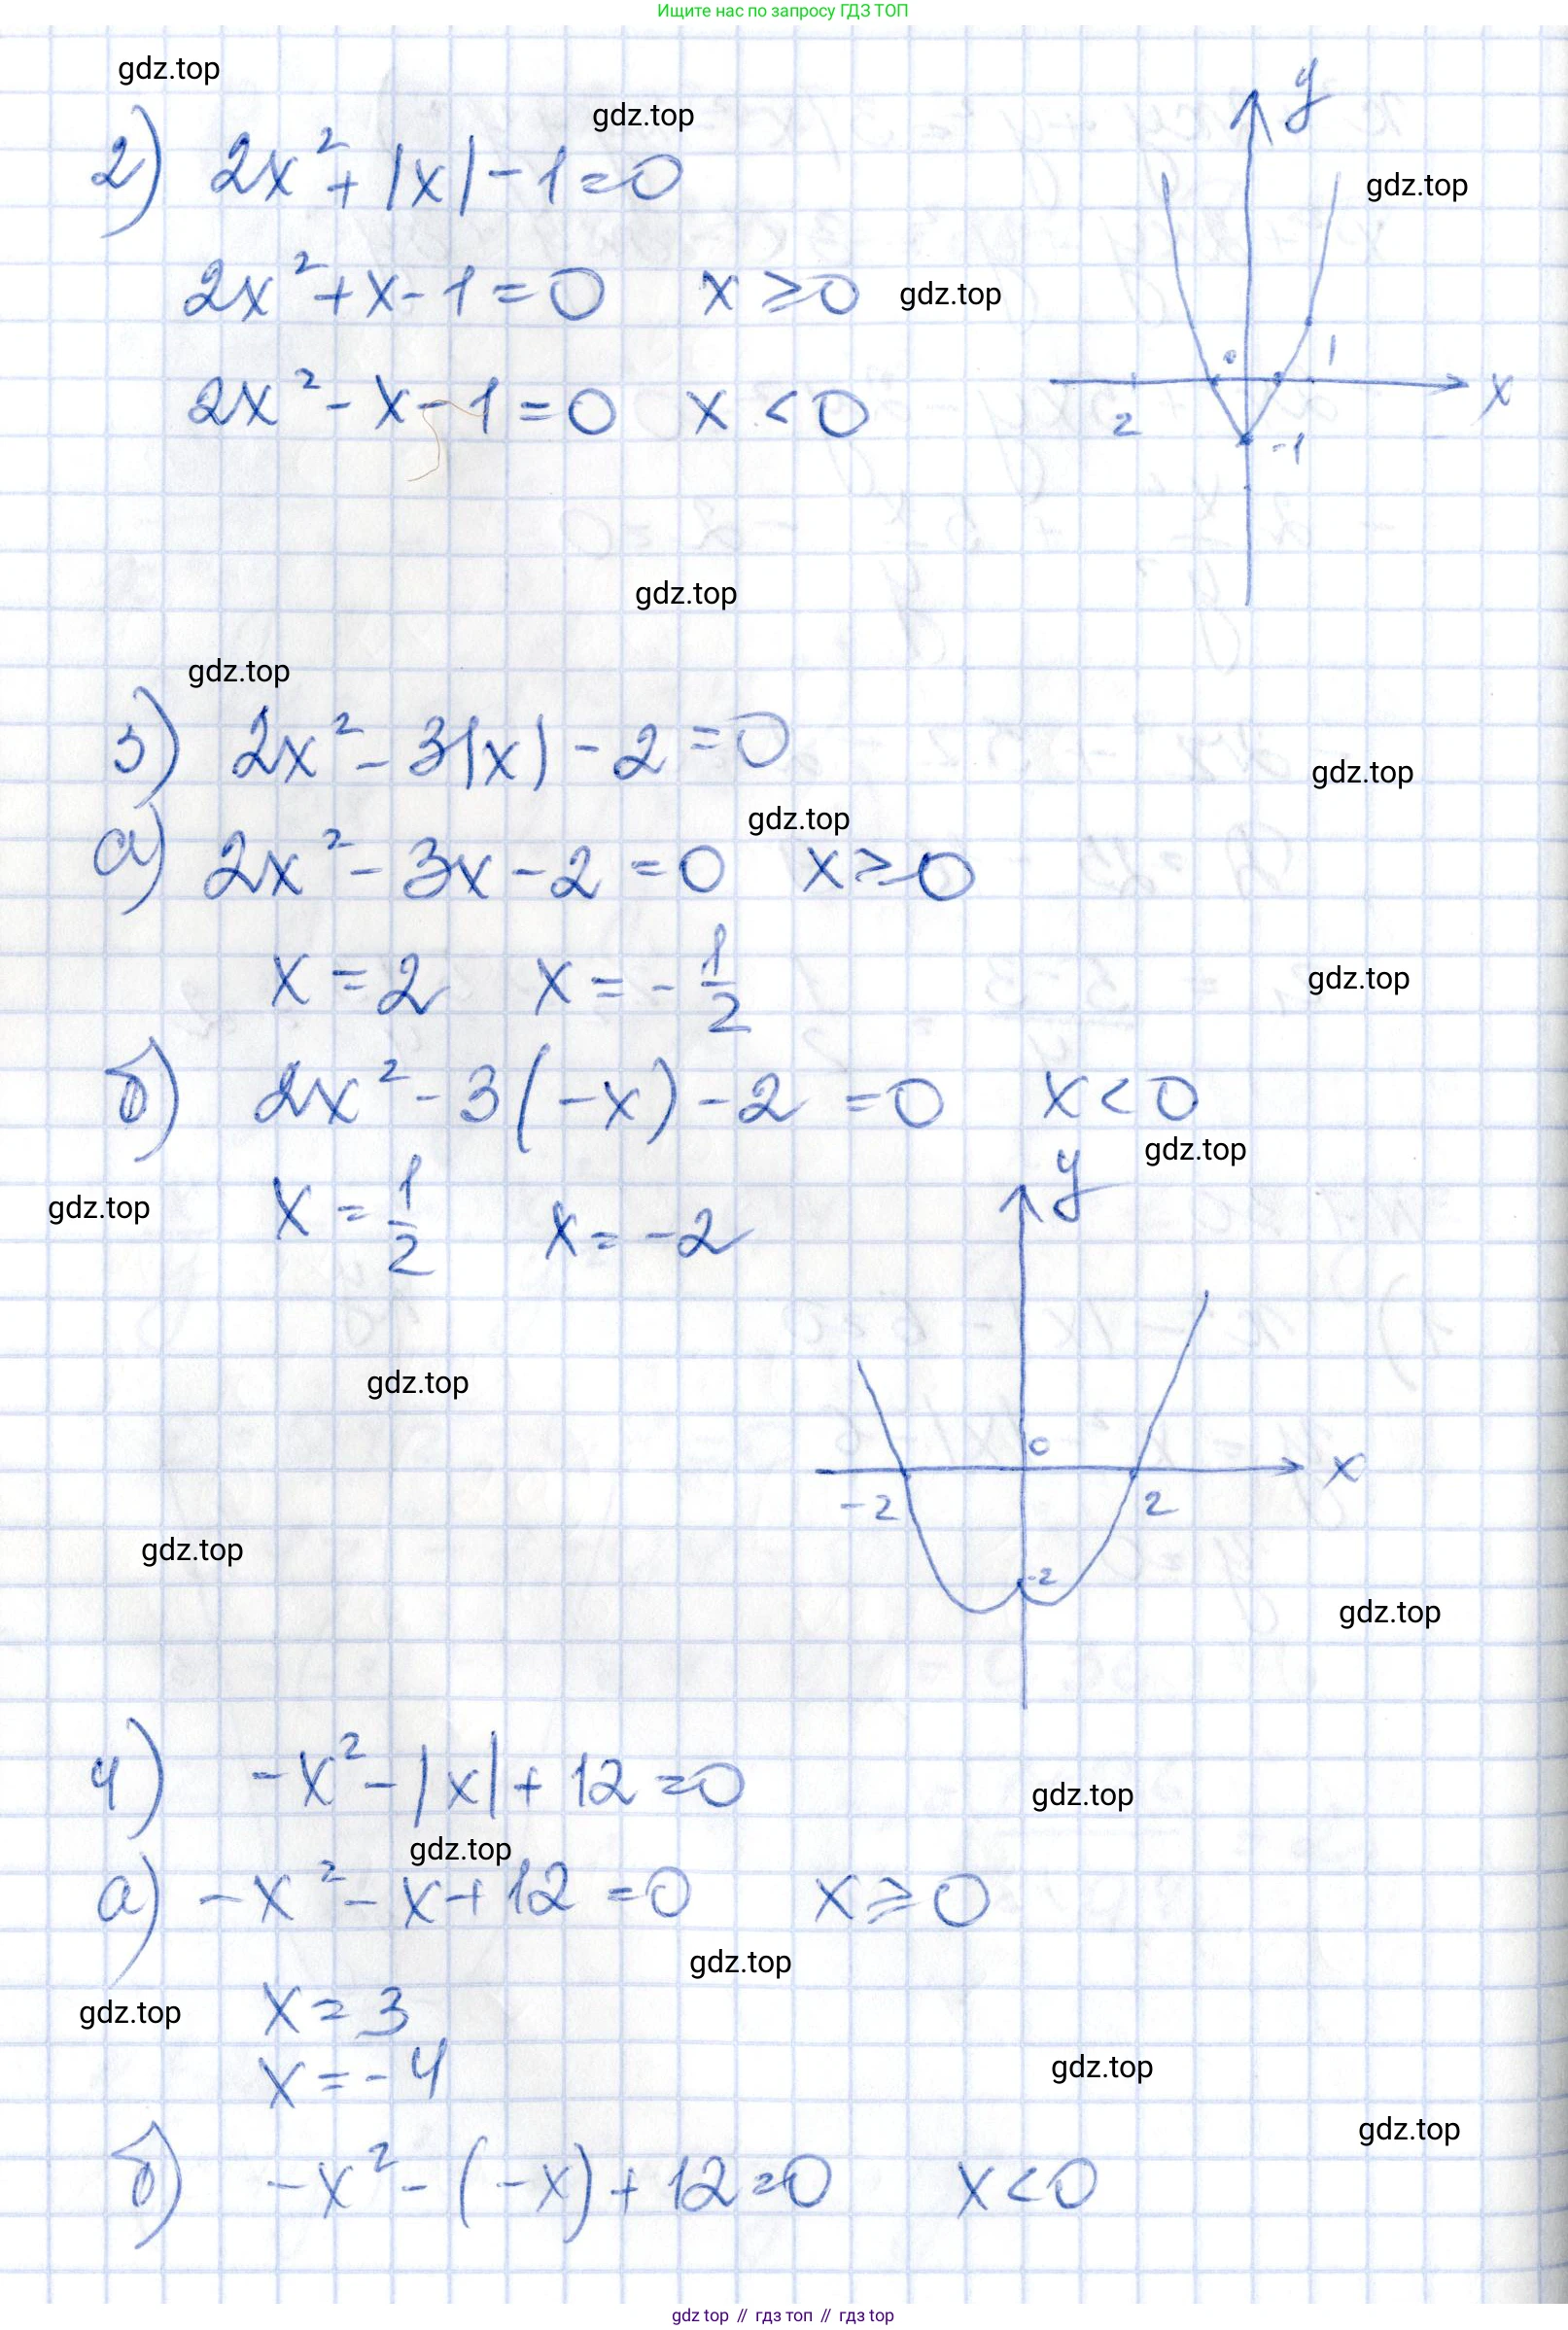 Ищите нас по запросу ГДЗ ТОП
gdz.top
gdz.top
y
2) 2x² + |x| - 1 = 0
gdz.top
2x² + x - 1 = 0 x ≥ 0
gdz.top
0 1
x
2x² - x - 1 = 0 x < 0
2 -1
gdz.top
gdz.top
3) 2x² - 3|x| - 2 = 0
gdz.top
gdz.top
а) 2x² - 3x - 2 = 0 x ≥ 0
x = 2 x = -1/2
gdz.top
б) 2x² - 3(-x) - 2 = 0 x < 0
gdz.top
y
gdz.top
x = 1/2 x = -2
gdz.top
0
x
-2 2
gdz.top
-2
gdz.top
4) -x² - |x| + 12 = 0
gdz.top
gdz.top
а) -x² - x + 12 = 0 x ≥ 0
gdz.top
gdz.top
x = 3
gdz.top
x = -4
gdz.top
б) -x² - (-x) + 12 = 0 x < 0
gdz top // гдз топ // гдз top